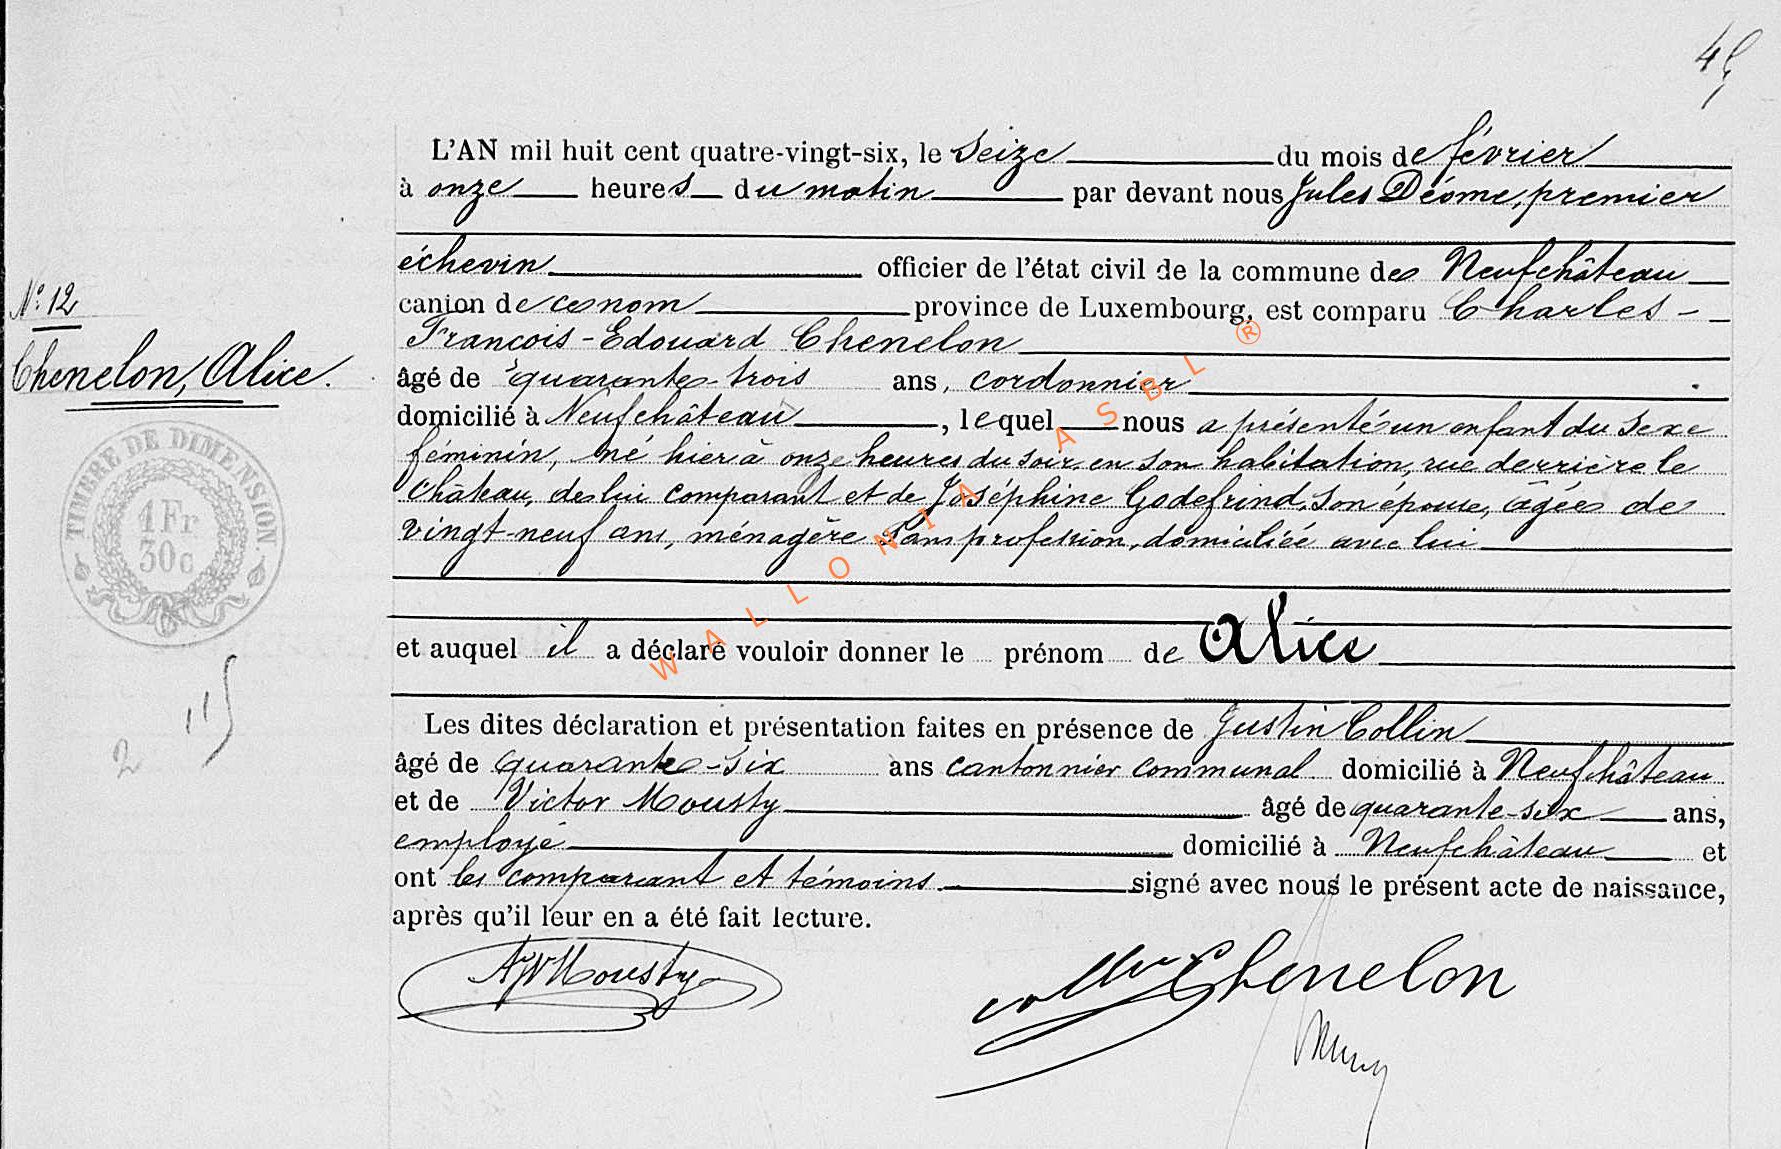 45
L'AN mil huit cent quatre-vingt-six, le seize du mois de février
à onze heures du matin par devant nous Jules Déome, premier
échevin officier de l'état civil de la commune de Neufchâteau
canton de ce nom province de Luxembourg, est comparu Charles-
François-Edouard Chenelon
âgé de quarante-trois ans, cordonnier
domicilié à Neufchâteau, lequel nous a présenté un enfant du sexe
féminin, né hier à onze heures du soir en son habitation, rue derrière le
Château, de lui comparant et de Joséphine Godefrind, son épouse, âgée de
vingt-neuf ans, ménagère sans profession, domiciliée avec lui
et auquel il a déclaré vouloir donner le prénom de Alice
Les dites déclaration et présentation faites en présence de Justin Collin
âgé de quarante-six ans cantonnier communal domicilié à Neufchâteau
et de Victor Mousty âgé de quarante-six ans,
employé domicilié à Neufchâteau et
ont les comparant et témoins signé avec nous le présent acte de naissance,
après qu'il leur en a été fait lecture.
N° 12
Chenelon, Alice.
TIMBRE DE DIMENSION.
1 Fr
30c
2
WALLONIA ASBL ®
Mousty
Collin Chenelon